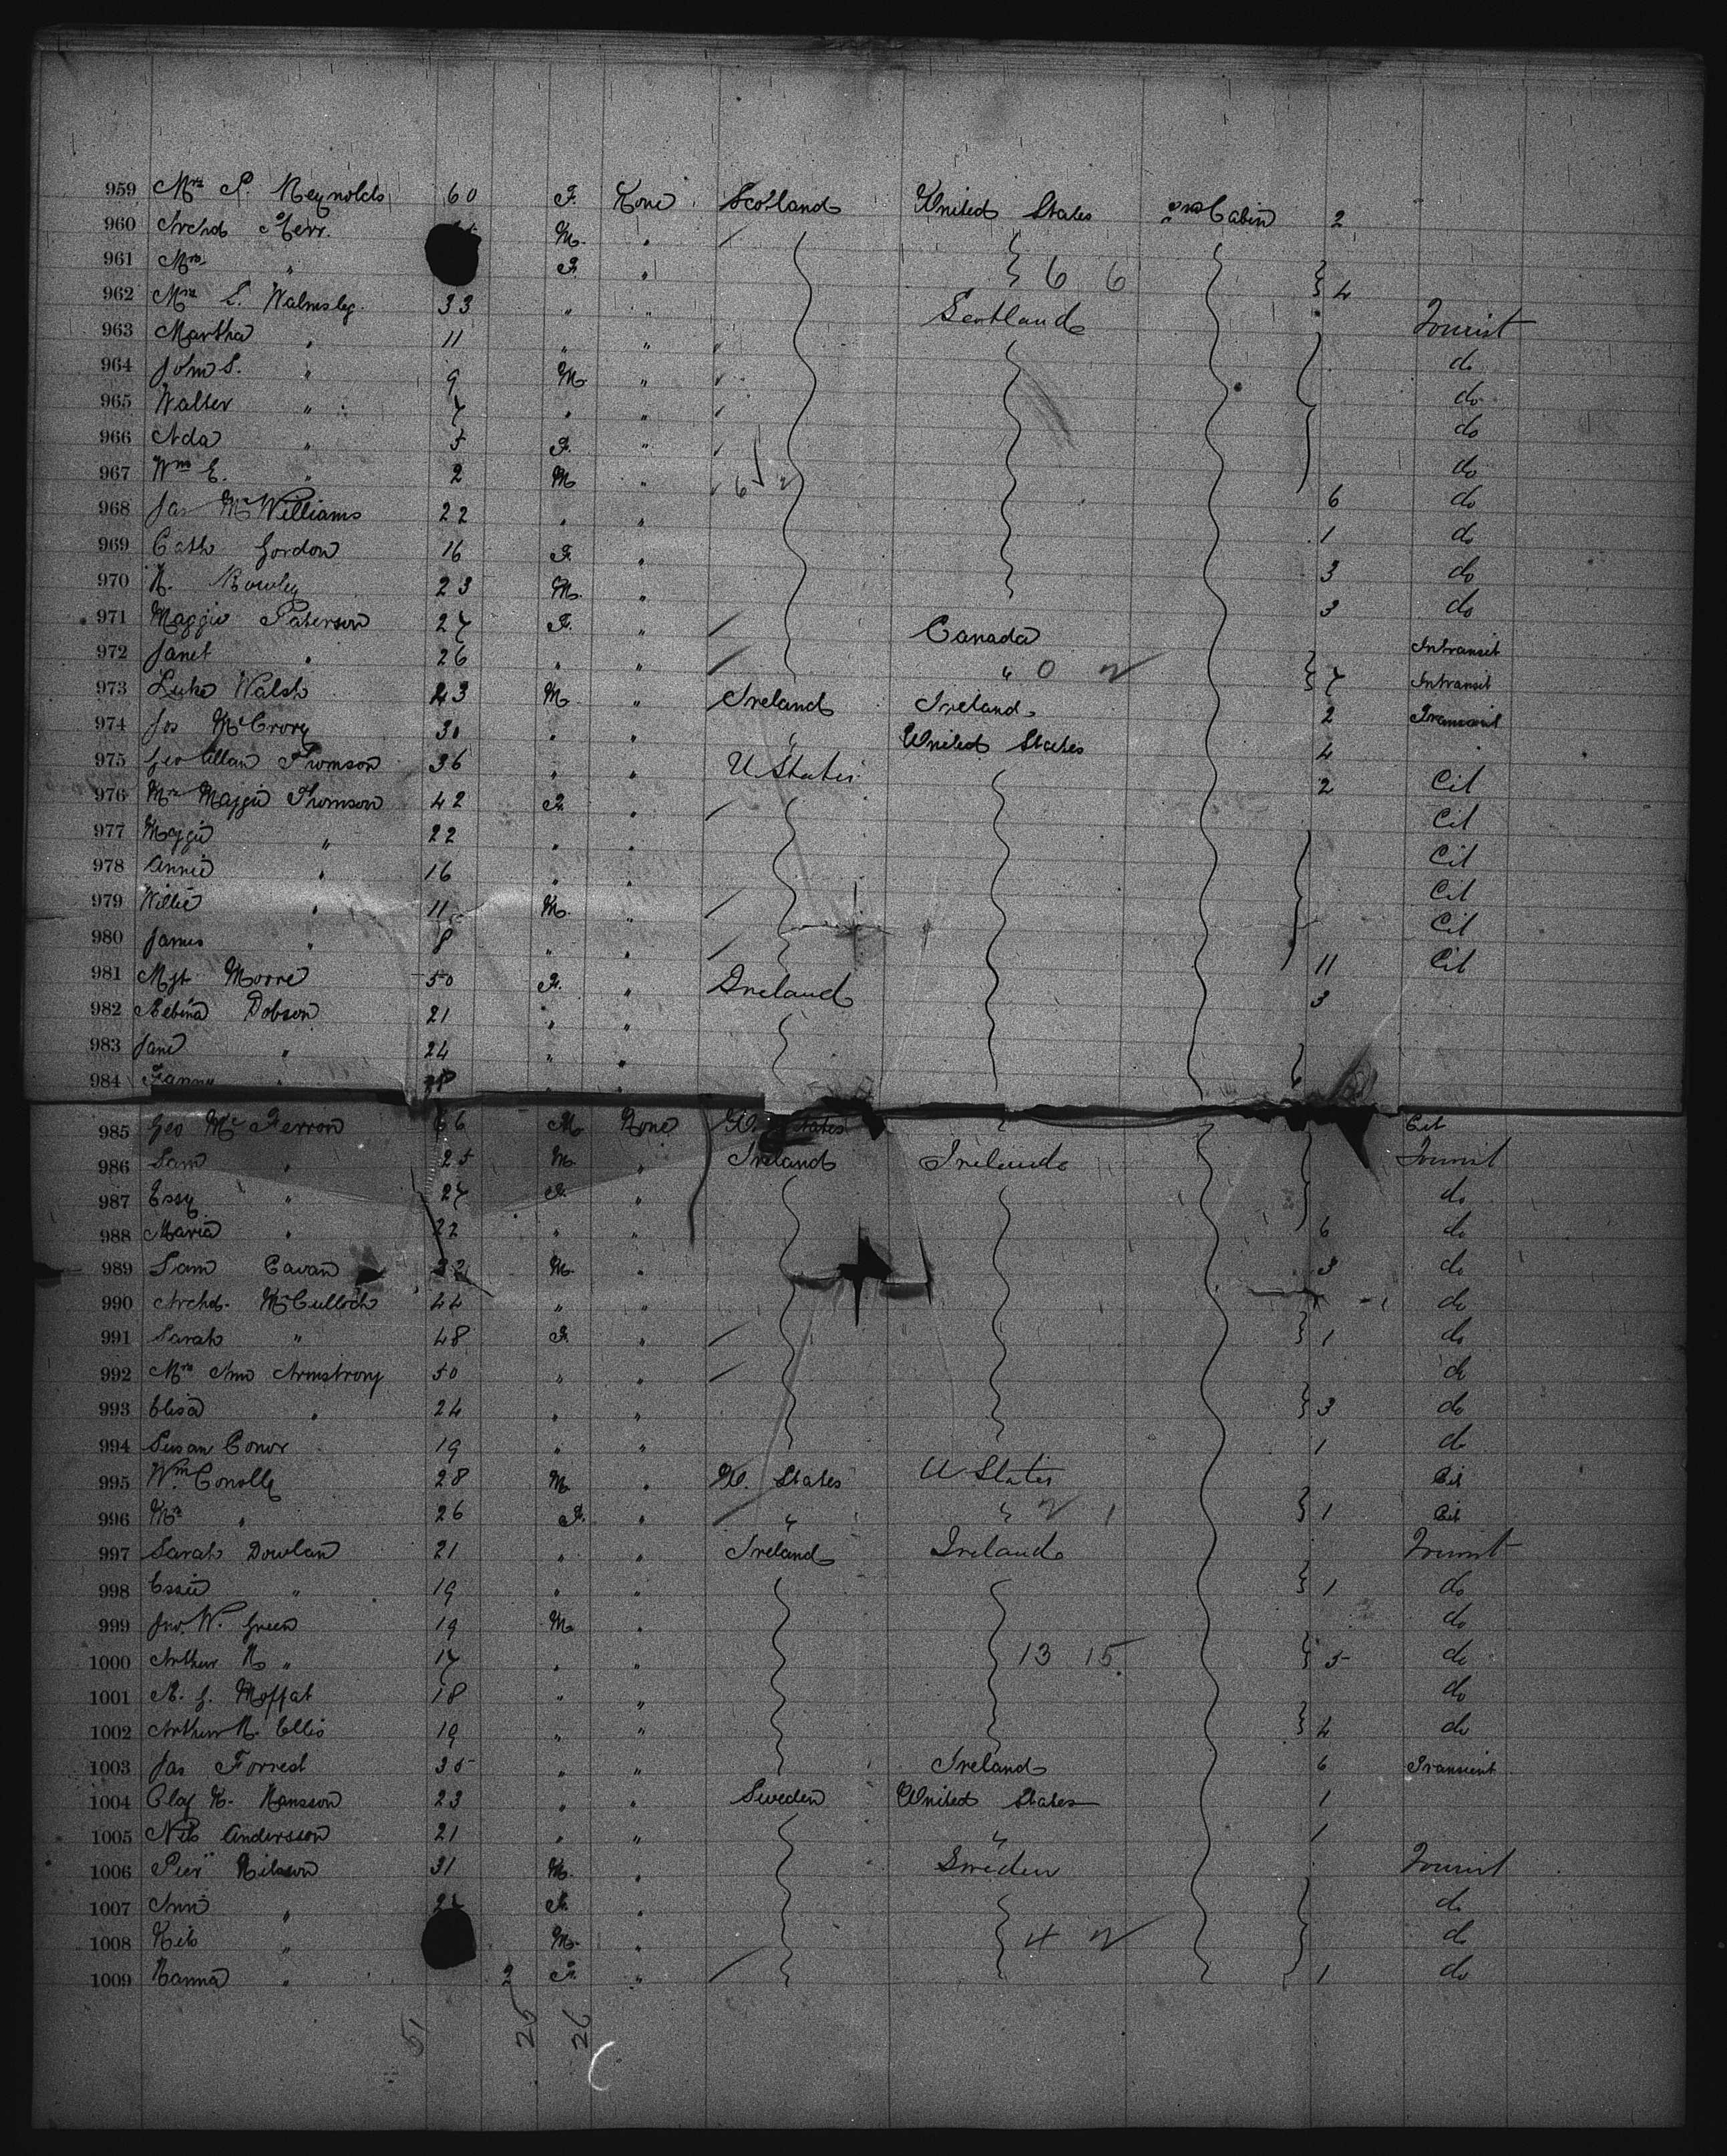 959 Mrs S. Reynolds 60 F. None Scotland United States 2nd Cabin 2
960 Archd Kerr. M. "
961 Mrs " F. " 6 6 4
962 Mrs L. Walmsley. 33 " " Scotland Tourist
963 Martha " 11 " " do
964 John S. " 9 M. " do
965 Walter " 7 " " do
966 Ada " 5 F. " do
967 Wm E. " 2 M " 6 do
968 Jas McWilliams 22 " " 6 do
969 Cath Gordon 16 F. " 1 do
970 R. Rowley 23 M. " 3 do
971 Maggie Paterson 27 F. " Canada 3 Intransit
972 Janet " 26 " " " 0 2 7 Intransit
973 Luke Walsh 43 M. " Ireland Ireland 2 Transient
974 Jos McCrory 30 " " " United States 4
975 Geo Allan Thomson 36 " " U States 2 Cit
976 Mrs Maggie Thomson 42 F. " Cit
977 Maggie " 22 " " Cit
978 Annie " 16 " " Cit
979 Willie " 11 M. " Cit
980 James " 8 " " 11 Cit
981 Mgt Moore 50 F. " Ireland 3
982 Robina Dobson 21 " "
983 Jane " 24 " "
984 Fanny " "
985 Geo McFerron 66 M None U. States Cit
986 Sam " 25 M. " Ireland Ireland Tourist
987 Essy " 27 F. " do
988 Maria " 22 " " 6 do
989 Sam Cavan 32 M. " 3 do
990 Archd. McCulloch 44 " " 1 do
991 Sarah " 48 F. " 1 do
992 Mrs Ann Armstrong 50 " " do
993 Elisa " 24 " " 3 do
994 Susan Conor 19 " " 1 do
995 Wm Conolly 28 M " U. States U States Cit
996 Mrs " 26 F. " " " 2 1 1 Cit
997 Sarah Dowlan 21 " " Ireland Ireland Tourist
998 Essie " 19 " " 1 do
999 Jno. W. Green 19 M. " do
1000 Arthur R " 17 " " 13 15. 5 do
1001 A. G. Moffat 18 " " do
1002 Arthur R. Ellis 19 " " 4 do
1003 Jas Forrest 35 " " Ireland 6 Transient
1004 Olaf K. Hansson 23 " " Sweden United States 1
1005 Nils Andersson 21 " " " 1
1006 Peer Nilsson 31 M. " Sweden Tourist
1007 Ann " F. " do
1008 Nils " M. " 4 2 do
1009 Hanna " 2 F. " 1 do
51 25 26